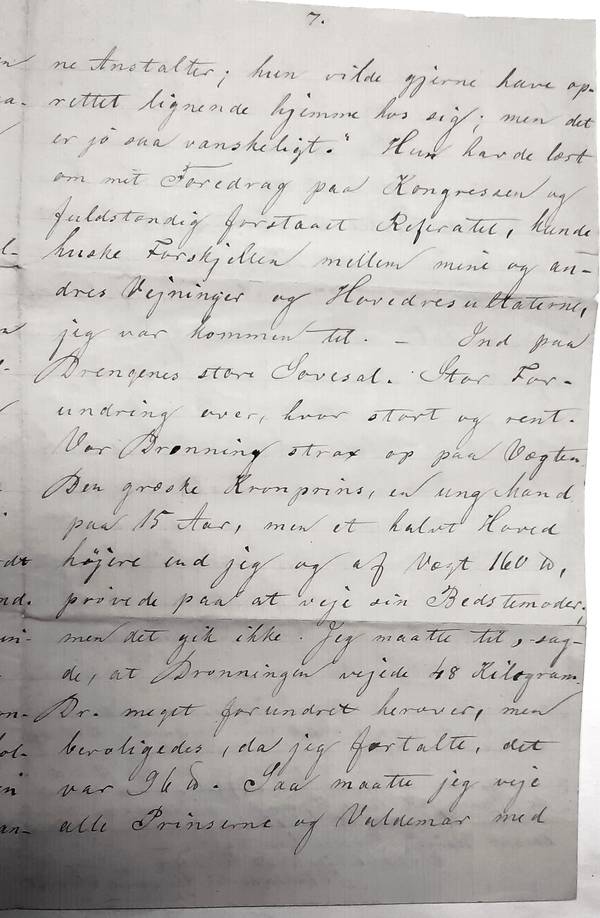 7.
ne Anstalter; hun vilde gjerne have op-
rettet lignende hjemme hos sig; men det
er jo saa vanskeligt." Hun havde læst
om mit Foredrag paa Kongressen og
fuldstændig forstaaet Referatet, kunde
huske Forskjellen mellem mine og an-
dres Vejninger og Hovedresultaterne,
jeg var kommen til. — Ind paa
Drengenes store Sovesal. Stor For-
undring over, hvor stort og rent.
Vor Dronning strax op paa Vægten
Den græske Kronprins, en ung Mand
paa 15 Aar, men et halvt Hoved
højere end jeg og af Vægt 160 ℔,
prøvede paa at veje sin Bedstemoder;
men det gik ikke. Jeg maatte til, sag-
de, at Dronningen vejede 48 Kilogram.
Dr. meget forundret herover, men
beroligedes, da jeg fortalte, det
var 96 ℔. Saa maatte jeg veje
alle Prinserne og Valdemar med